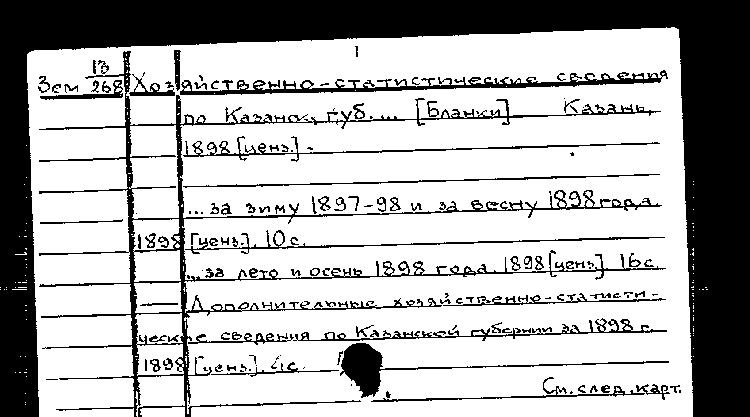 1
Зем 13/268 Хозяйственно-статистические сведения
по Казанск. губ. ... [Бланки] Казань,
1898 [ценз.] -
... за зиму 1897-98 и за весну 1898 года.
1898 [ценз.]. 10 с.
... за лето и осень 1898 года. 1898 [ценз.] 16 с.
Дополнительные хозяйственно-статисти-
ческие сведения по Казанской губернии за 1898 г.
1898 [ценз.]. 4 с.
См. след. карт.